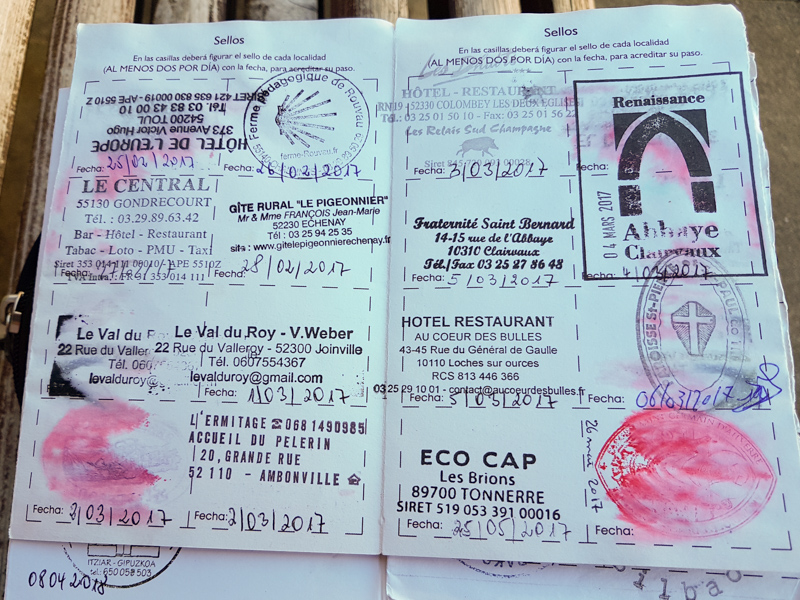 Sellos
En las casillas deberá figurar el sello de cada localidad
(AL MENOS DOS POR DÍA) con la fecha, para acreditar su paso.
HÔTEL DE L'EUROPE
373 Avenue Victor Hugo
54200 TOUL
Tél. 03 83 43 00 10
SIRET 421 636 830 00019 - APE 5510 Z
Fecha: 25/02/2017
Ferme pédagogique de Rouvau
ferme-Rouvau.fr
Fecha: 26/02/2017
LE CENTRAL
55130 GONDRECOURT
Tél. : 03.29.89.63.42
Bar - Hôtel - Restaurant
Tabac - Loto - PMU - Taxi
Siret 353 014 111 00010 / APE 5510Z
TVA Intra: FR 61 353 014 111
Fecha:
GÎTE RURAL "LE PIGEONNIER"
Mr & Mme FRANÇOIS Jean-Marie
52230 ECHENAY
Tél : 03 25 94 25 35
site : www.gitelepigeonnierechenay.fr
Fecha: 28/02/2017
Le Val du R
22 Rue du Valler
Tél. 060
levalduroy@
Le Val du Roy - V.Weber
22 Rue du Vallergy - 52300 Joinville
Tél. 0607554367
levalduroy@gmail.com
Fecha: 1/03/2017
Fecha: 2/03/2017
L'ERMITAGE ☎068 1490985
ACCUEIL DU PELERIN
20, GRANDE RUE
52 110 - AMBONVILLE
Fecha: 2/03/2017
ITZIAR - GIPUZKOA
tel.: 650 058 503
08 04 2018
Sellos
En las casillas deberá figurar el sello de cada localidad
(AL MENOS DOS POR DÍA) con la fecha, para acreditar su paso.
HÔTEL - RESTAURANT
RN19 - 52330 COLOMBEY LES DEUX EGLISES
Tél.: 03 25 01 50 10 - Fax: 03 25 01 56 22
Les Relais Sud Champagne
Siret
Fecha: 3/03/2017
Renaissance
04 MARS 2017
Abbaye
Clairvaux
Fecha: 4/03/2017
Fraternité Saint Bernard
14-15 rue de l'Abbaye
10310 Clairvaux
Tél./Fax 03 25 27 86 48
Fecha: 5/03/2017
Fecha: 06/03/2017
HOTEL RESTAURANT
AU COEUR DES BULLES
43-45 Rue du Général de Gaulle
10110 Loches sur ources
RCS 813 446 366
03 25 29 10 01 - contact@aucoeurdesbulles.fr
Fecha: 5/03/2017
ECO CAP
Les Brions
89700 TONNERRE
SIRET 519 053 391 00016
Fecha: 25/05/2017
26 mai 2017
Fecha:
lbao